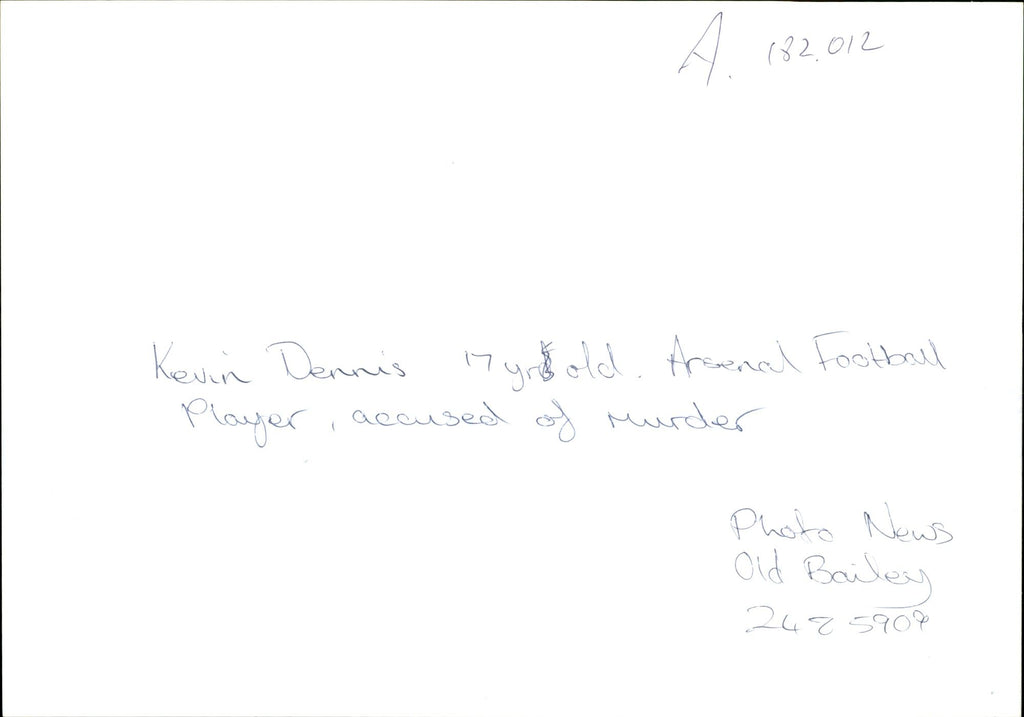 A. 182.012
Kevin Dennis 17 yr old. Arsenal Football
Player, accused of murder
Photo News
Old Bailey
248 5909